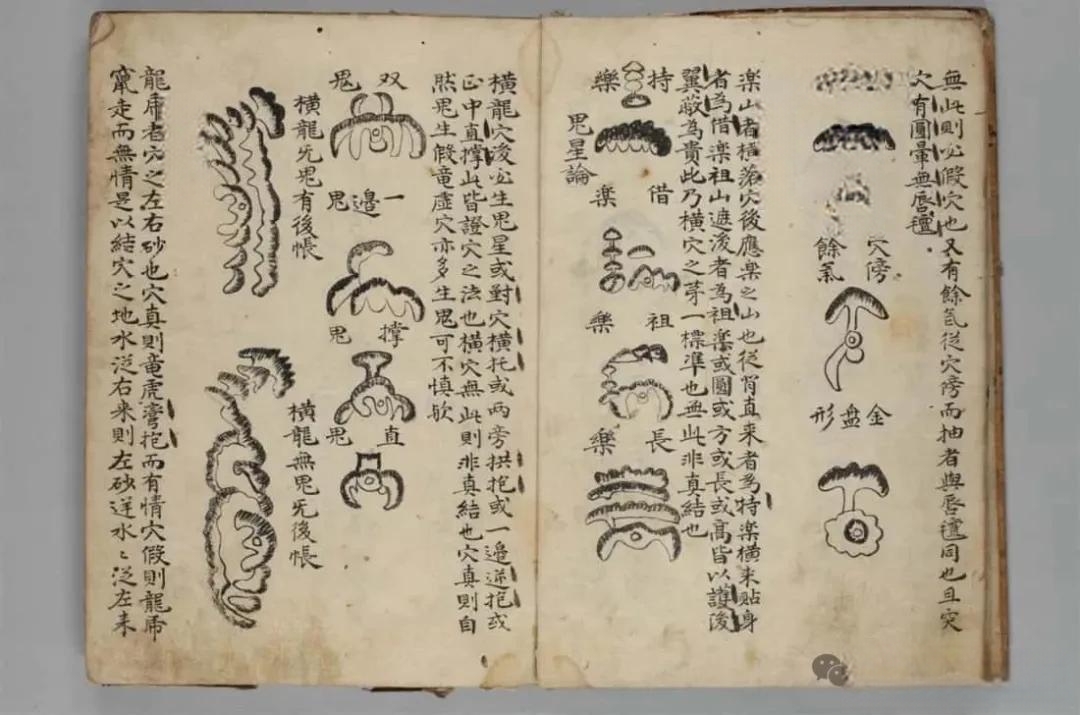 無此則必假穴也又有餘氣從穴傍而抽者與唇氊同也且穴
穴有圓暈無唇氊
穴傍
餘氣
金盘形
楽山者橫落穴後應楽之山也従背直来者為特楽橫来貼身
者為借楽祖山遮後者為祖楽或圓或方或長或高皆以護後
翼蔽為貴此乃橫穴之第一標準也無此非真結也
特楽
借楽
祖楽
長楽
鬼星論
橫龍穴後必生鬼星或對穴橫托或两旁拱抱或一邊逆抱或
正中直撑此皆證穴之法也橫穴無此則非真結也穴真則自
然鬼生假竜虚穴亦多生鬼可不慎欤
双鬼
一邊鬼
撑鬼
直鬼
橫龍无鬼有後帳
橫龍無鬼无後帳
龍虎者穴之左右砂也穴真則竜虎弯抱而有情穴假則龍虎
竄走而無情是以結穴之地水従右来則左砂逆水〻従左来